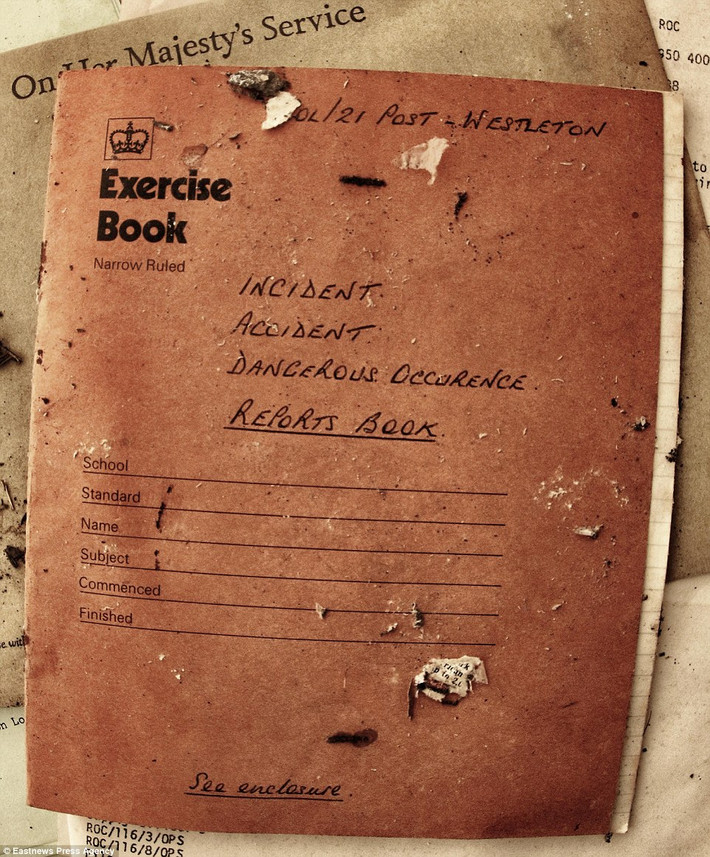 On Her Majesty's Service
ROC
950 400
OL/21 POST - WESTLETON
Exercise
Book
Narrow Ruled
INCIDENT
ACCIDENT
DANGEROUS OCCURENCE
REPORTS BOOK
School
Standard
Name
Subject
Commenced
Finished
See enclosure.
ROC/116/3/OPS
ROC/116/8/OPS
© Eastnews Press Agency